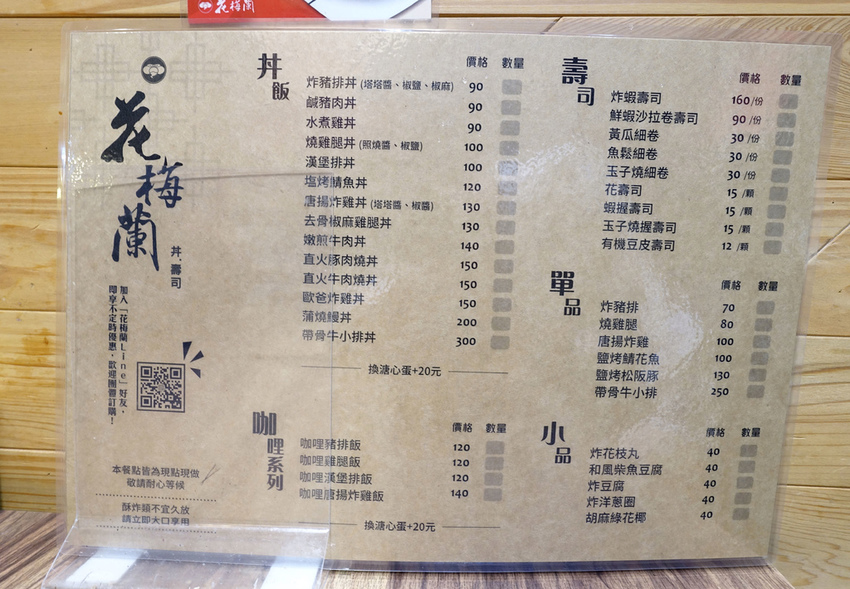 花梅蘭
花梅蘭
丼．壽司
加入「花梅蘭Line」好友，
即享不定時優惠，歡迎團體訂購！
本餐點皆為現點現做
敬請耐心等候
酥炸類不宜久放
請立即大口享用
丼飯
價格 數量
炸豬排丼 (塔塔醬、椒鹽、椒麻) 90
鹹豬肉丼 90
水煮雞丼 90
燒雞腿丼 (照燒醬、椒鹽) 100
漢堡排丼 100
塩烤鯖魚丼 120
唐揚炸雞丼 (塔塔醬、椒醬) 130
去骨椒麻雞腿丼 130
嫩煎牛肉丼 140
直火豚肉燒丼 150
直火牛肉燒丼 150
歐爸炸雞丼 150
蒲燒鰻丼 200
帶骨牛小排丼 300
換溏心蛋+20元
咖哩系列
價格 數量
咖哩豬排飯 120
咖哩雞腿飯 120
咖哩漢堡排飯 120
咖哩唐揚炸雞飯 140
換溏心蛋+20元
壽司
價格 數量
炸蝦壽司 160/份
鮮蝦沙拉卷壽司 90/份
黃瓜細卷 30/份
魚鬆細卷 30/份
玉子燒細卷 30/份
花壽司 15/顆
蝦握壽司 15/顆
玉子燒握壽司 15/顆
有機豆皮壽司 12/顆
單品
價格 數量
炸豬排 70
燒雞腿 80
唐揚炸雞 100
鹽烤鯖花魚 100
鹽烤松阪豚 130
帶骨牛小排 250
小品
價格 數量
炸花枝丸 40
和風柴魚豆腐 40
炸豆腐 40
炸洋蔥圈 40
胡麻綠花椰 40